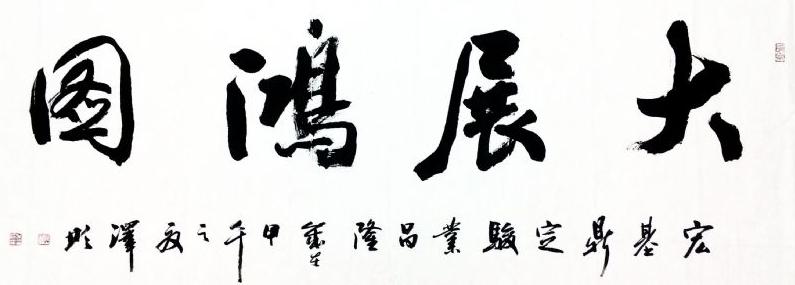 大展鴻圖
宏基鼎定駿業昌隆歲在甲午之夏澤